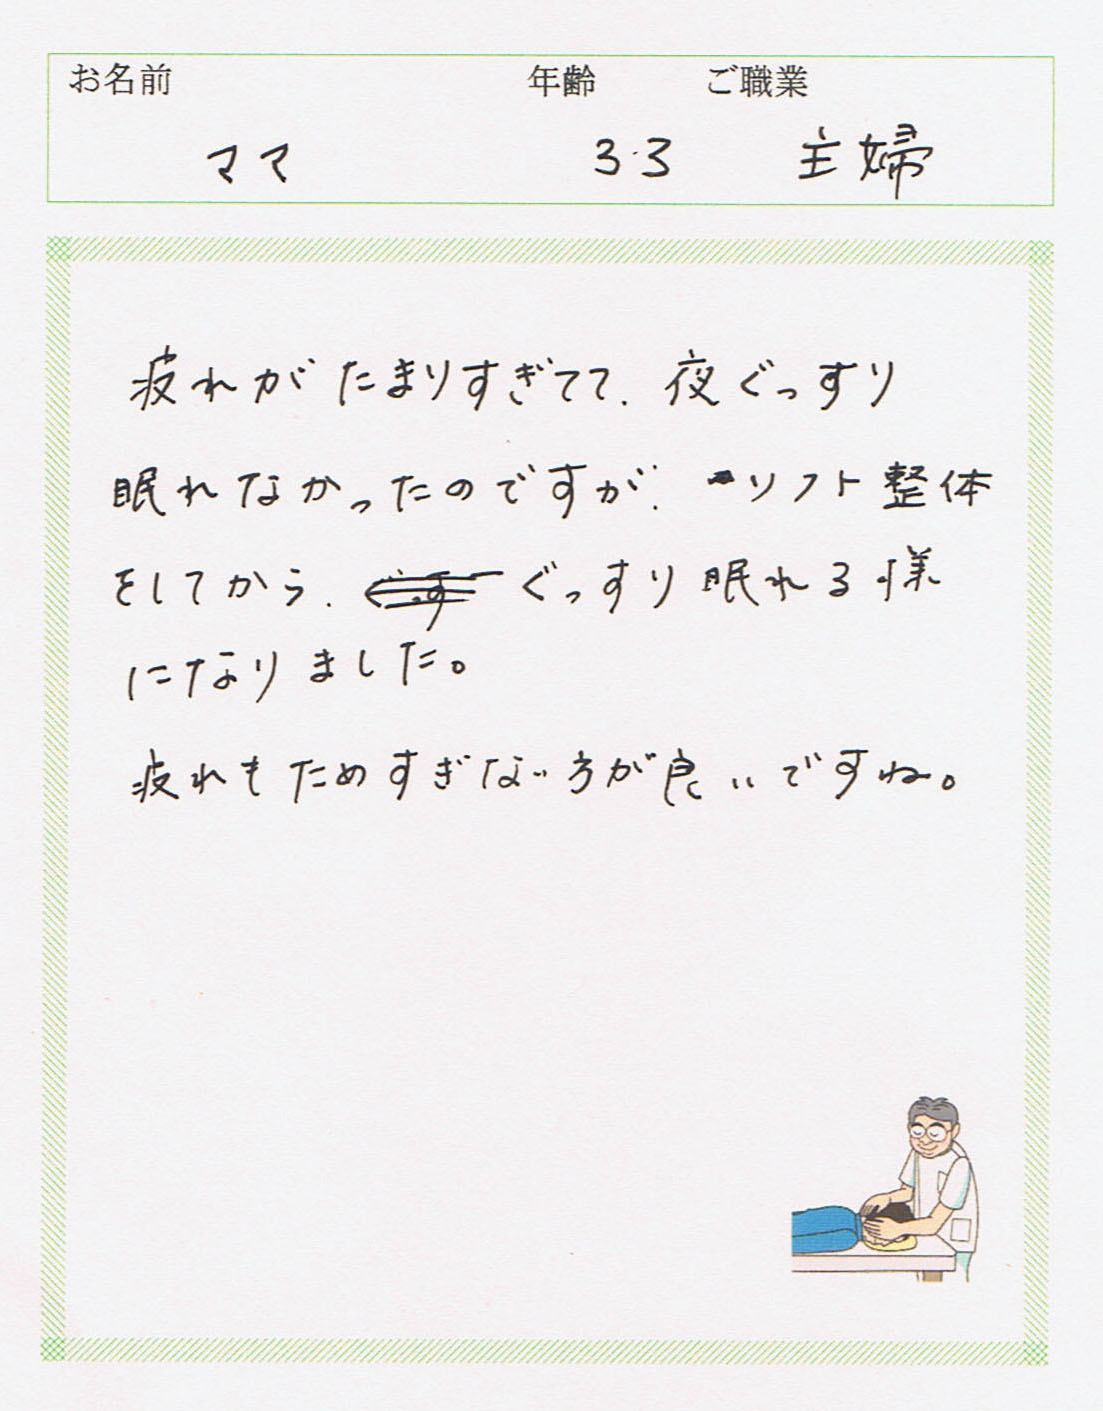 お名前 年齢 ご職業
ママ 33 主婦
疲れがたまりすぎてて、夜ぐっすり
眠れなかったのですが、ソフト整体
をしてから、ぐっすり眠れる様
になりました。
疲れもためすぎない方が良いですね。